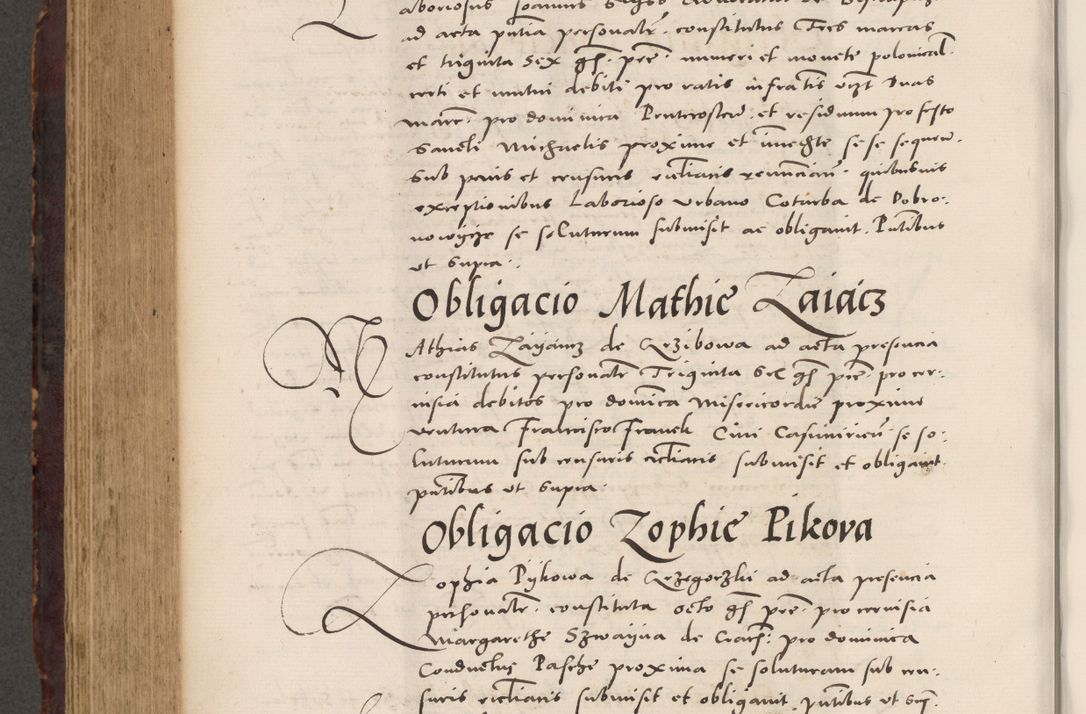 ad acta pñtia personalr̃. constitutus Tres marcas
et triginta Sex gs̃. prẽ. numeri et monete polonical̃.
certi et mutui debiti pro ratis infratis vizt Duas
marc̃. pro dominica Penthecosten̄. et residuum pro festo
Sancti Michaelis proxime et imẽdte se se sequen̄.
Sub penis et censuris eccliasticis renuncian̄. quibusuis
exceptionibus Laborioso Vrbano Coturba de Dobro:
nowijcze se soluturum submisit ac obligauit. Pñtibus
vt Supra.
Obligacio Mathie Zaiacz
Athias Zayancz de Grzibowa ad acta presencia
constitutus personalr̃ Triginta Sex gs̃ prẽ. pro cer:
uisia debitos pro domica Misericordie proxime
ventura Francisco Franck Ciui Casimirien̄ se so:
luturum sub censuris eccliasticis submisit et obligauit.
pñtibus vt Supra.
Obligacio Zophie Pikova
Zophia Pykowa de Grzegorzki ad acta presencia
personalr̃. constituta octo gs̃ prẽ. pro ceruisia
Margarethe Szwayna de Crac̃. pro dominica
Conductus Pasche proxima se soluturam sub cen:
suris eccliasticis submisit et obligauit. pñtibus vt Sup̃.